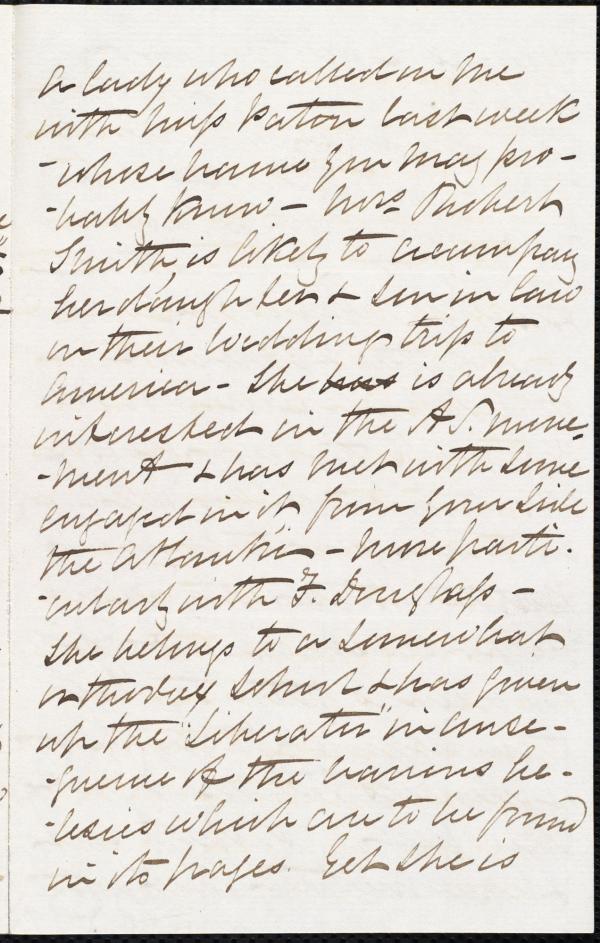 A lady who called on me
with Miss Paton last week
- whose name you may pro-
-bably know - Mrs Robert
Smith, is likely to accompany
her daughter & son in law
on their wedding trip to
America - She has is already
interested in the A.S. move-
-ment & has met with some
engaged in it from your side
the Atlantic - more parti-
-cularly with F. Douglass -
She belongs to a somewhat
orthodox school & has given
up the "Liberator" in conse-
-quence of the various he-
-resies which are to be found
in its pages. Yet she is